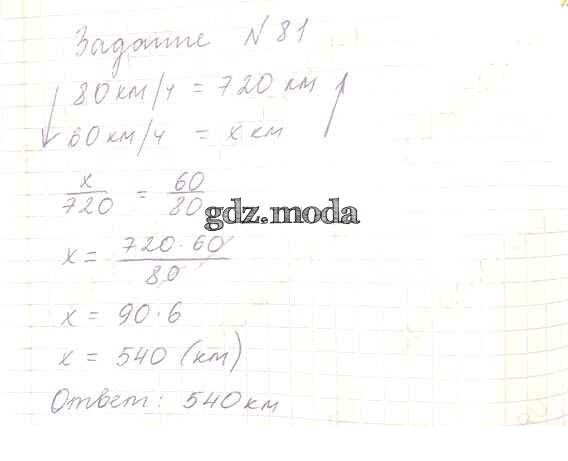 Задание №81
80 км/ч = 720 км
60 км/ч = x км
x/720 = 60/80
gdz.moda
x = 720·60/80
x = 90·6
x = 540 (км)
Ответ: 540 км